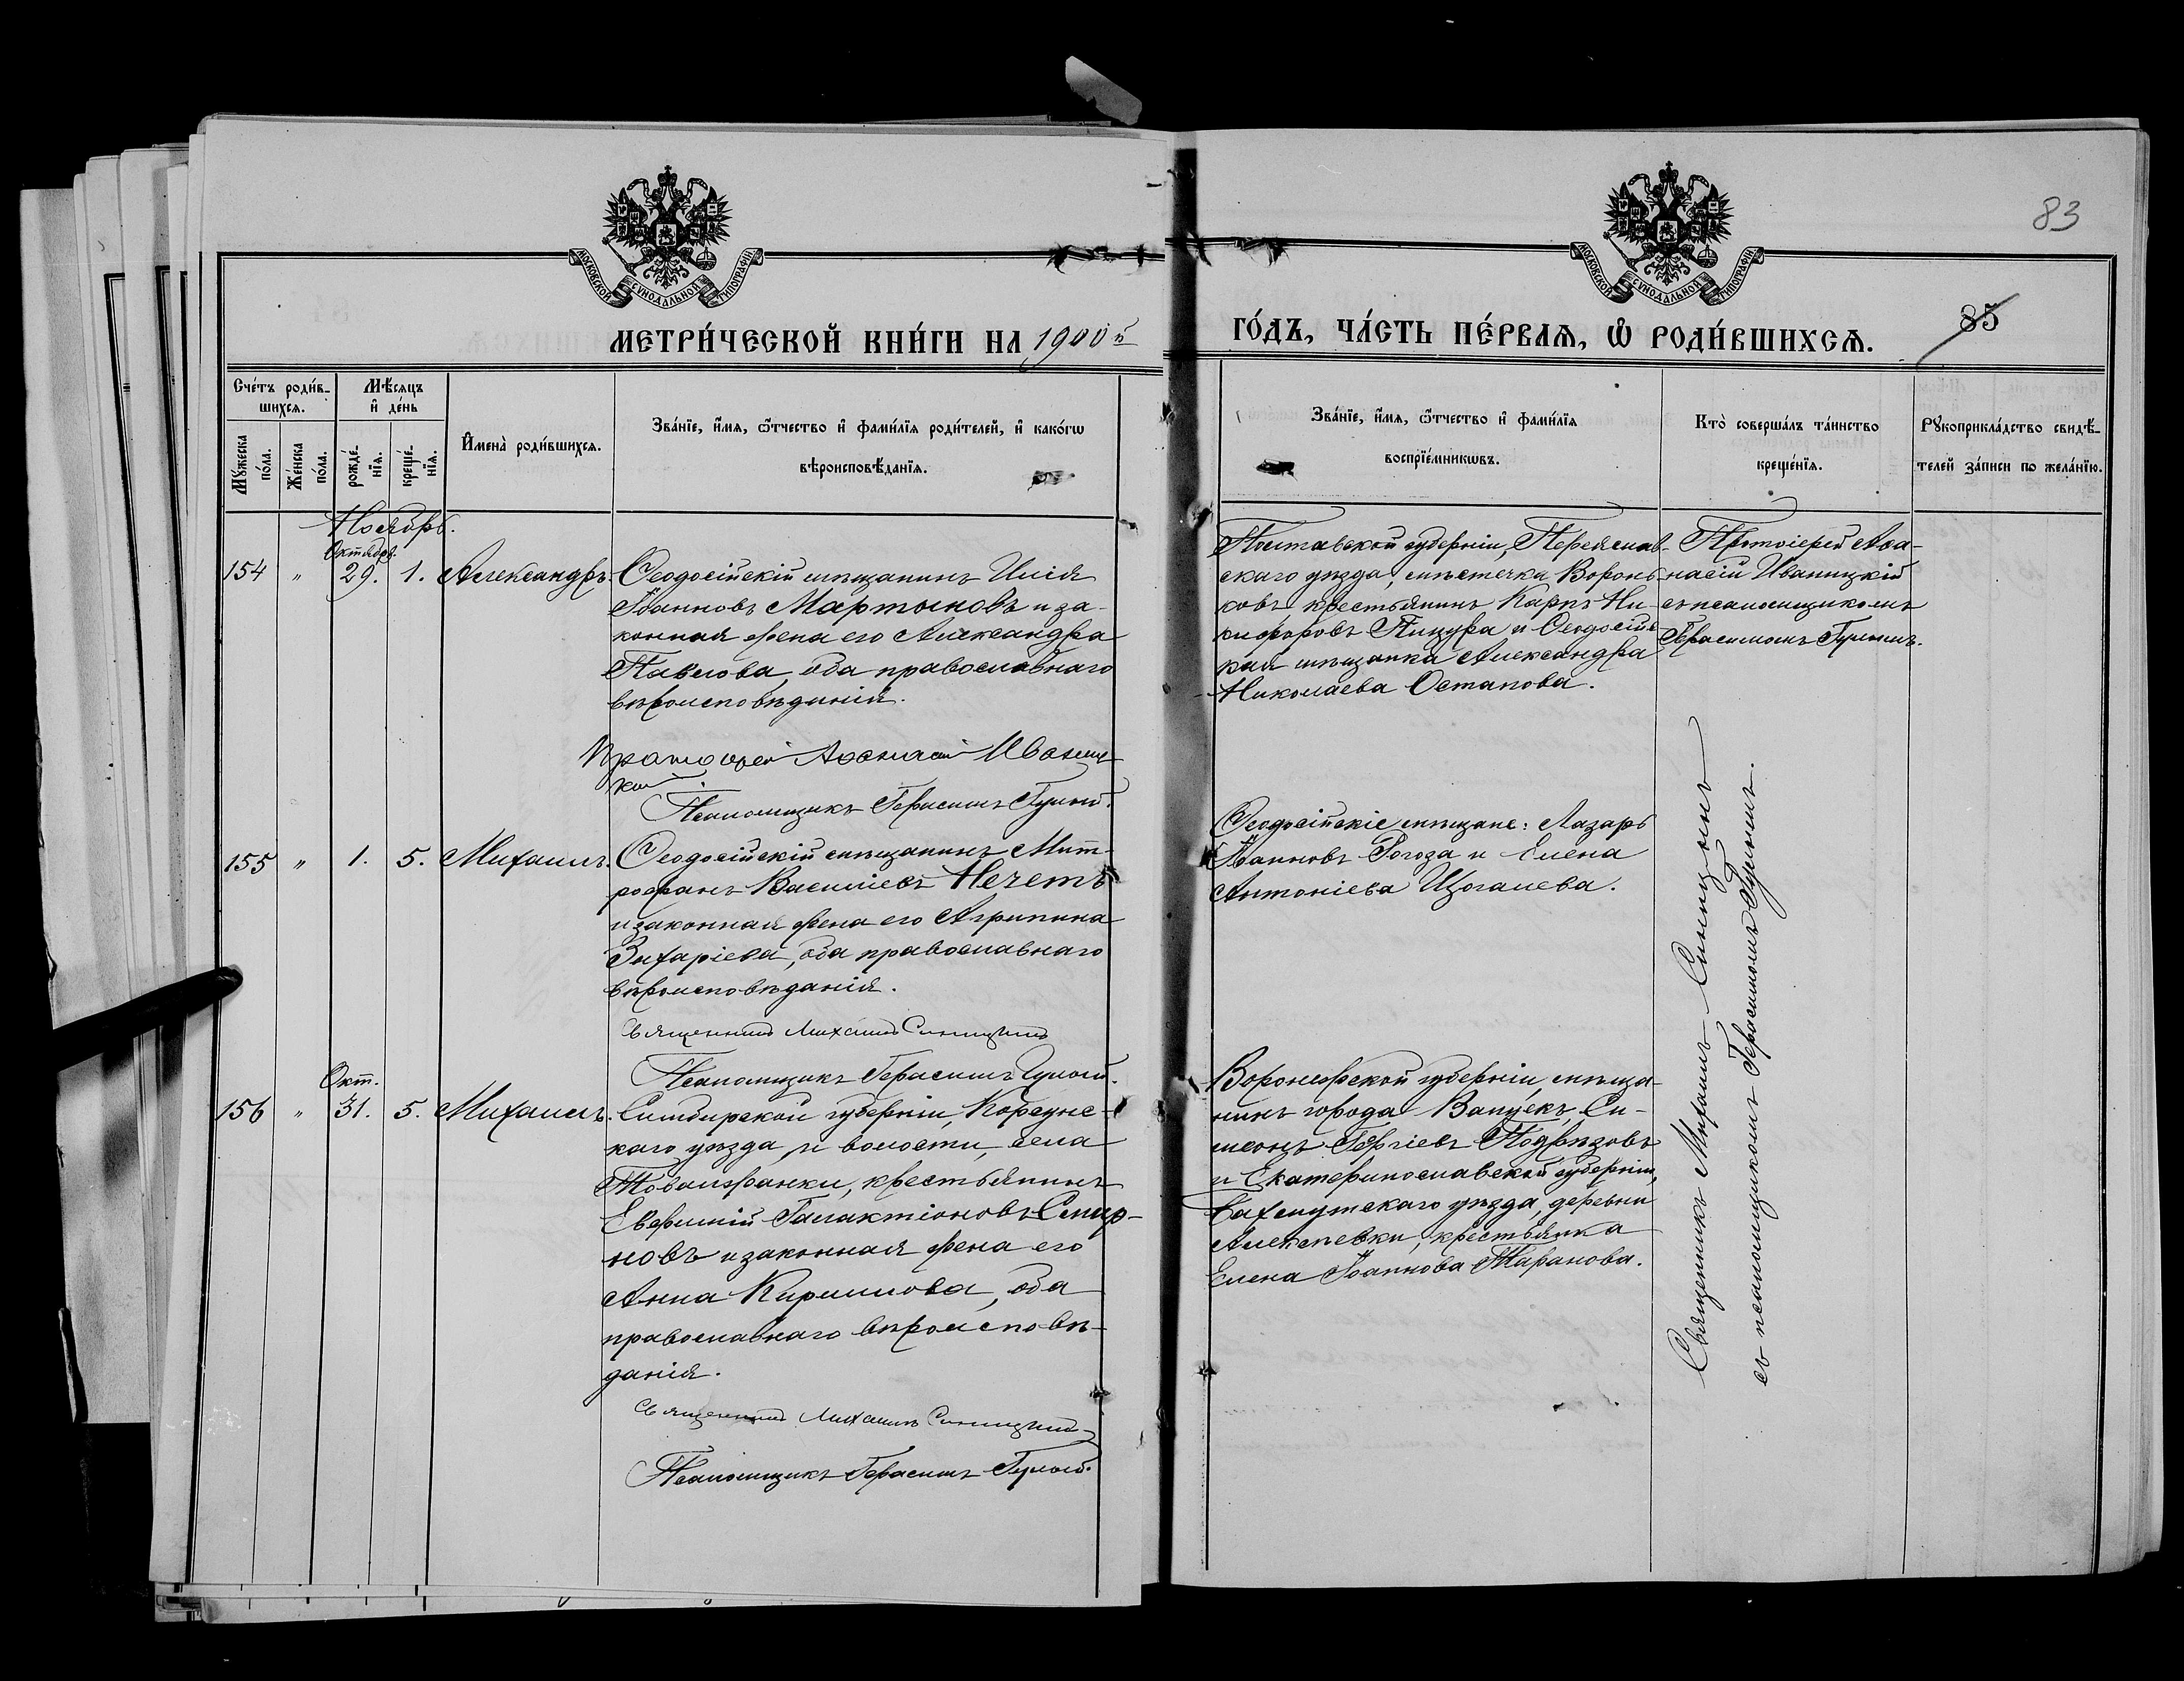 83
МОСКОВСКОЙ СѴНОДАЛЬНОЙ ТИПОГРАФІИ
МОСКОВСКОЙ СѴНОДАЛЬНОЙ ТИПОГРАФІИ
МЕТРИ́ЧЕСКОЙ КНИ́ГИ НА 1900й
ГО́ДЪ, ЧА́СТЬ ПЕ́РВАѦ, Ѽ РОДИ́ВШИХСѦ.
85
Сче́тъ роди́в-
шихсѧ.
Мѣ́сѧцъ
и҆ де́нь
Мꙋ́жеска
по́ла.
Же́нска
по́ла.
рожде́-
нїѧ.
креще́-
нїѧ.
И҆мена̀ роди́вшихсѧ.
Зва́нїе, и҆́мѧ, ѻ҆́тчество и҆ фами́лїѧ роди́телей, и҆ како́гѡ
вѣроисповѣ́данїѧ.
Зва́нїе, и҆́мѧ, ѻ҆́тчество и҆ фами́лїѧ
воспрїе́мникѡвъ.
Кто̀ соверша́лъ та́инство
креще́нїѧ.
Рꙋкоприкла́дство свидѣ́-
телей за́писи по жела́нїю.
Ноябрь.
Октябрь.
154 " 29. 1. Александръ.
Ѳеодосійскій мѣщанинъ Илія
Іоанновъ Мартыновъ и за-
конная жена его Александра
Павлова, оба православнаго
вѣроисповѣданія.
Протоіерей Аѳанасій Иваниц-
кій
Псаломщикъ Герасимъ
Полтавской губерніи, Переяслав-
скаго уѣзда, мѣстечка Воронь-
ковъ крестьянинъ Карпъ Ни-
кифоровъ Пицура и Ѳеодосійс-
кая мѣщанка Александра
Николаева Остапова.
Протоіерей Аѳа-
насій Иваницкій
съ псаломщикомъ
Герасимомъ
155 " 1. 5. Михаилъ.
Ѳеодосійскій мѣщанинъ Мит-
рофанъ Василіевъ Нечетъ
и законная жена его Агрипина
Захаріева, оба православнаго
вѣроисповѣданія.
Священникъ Михаилъ Синицынъ
Псаломщикъ Герасимъ
Ѳеодосійскіе мѣщане: Лазарь
Іоанновъ Рогоза и Елена
Антоніева Цоголева.
Окт.
156 " 31. 5. Михаилъ.
Симбирской губерніи, Корсунс-
каго уѣзда, и волости, села
крестьянинъ
Евфимій Галактіоновъ Смир-
новъ и законная жена его
Анна Кириллова, оба
православнаго вѣроисповѣ-
данія.
Священникъ Михаилъ Синицынъ
Псаломщикъ Герасимъ
Воронежской губерніи, мѣща-
нинъ города Си-
меонъ Подрѣзовъ
и Екатеринославской губерніи,
Бахмутскаго уѣзда, деревни
Алексѣевки, крестьянка
Елена Іоаннова Таранова.
Священникъ Михаилъ Синицынъ
съ псаломщикомъ Герасимомъ